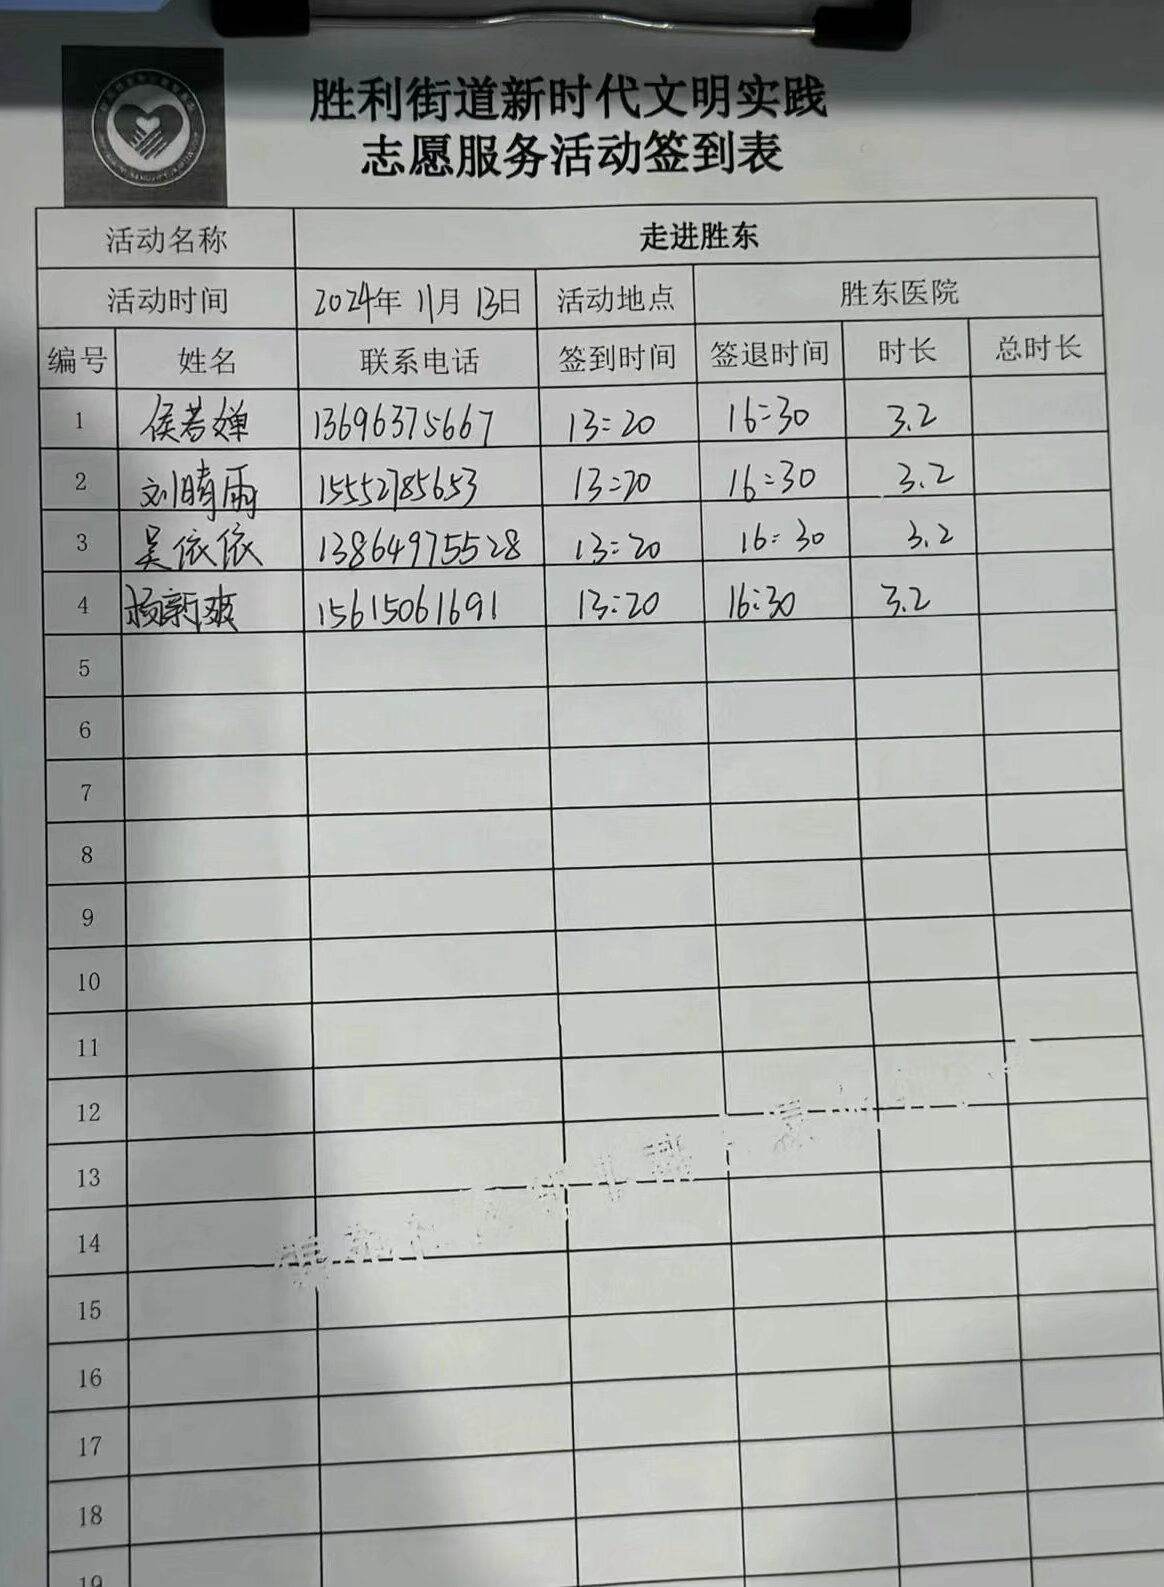 胜利街道新时代文明实践
志愿服务活动签到表
活动名称 走进胜东
活动时间 2024年 11月 13日 活动地点 胜东医院
编号 姓名 联系电话 签到时间 签退时间 时长 总时长
1 侯若婵 13696375667 13:20 16:30 3.2
2 刘晴雨 15552785653 13:20 16:30 3.2
3 吴依依 13864975528 13:20 16:30 3.2
4 杨新爽 15615061691 13:20 16:30 3.2
5
6
7
8
9
10
11
12
13
14
15
16
17
18
19